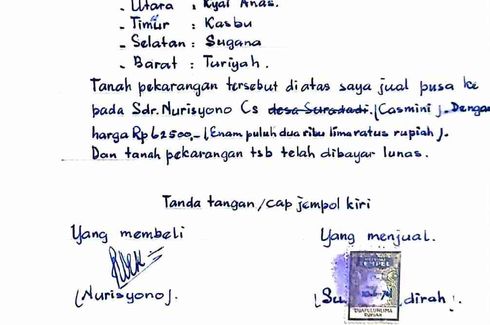 - Utara : Kyai Anas.
- Timur : Kasbu
- Selatan : Sugana
- Barat : Turiyah.
Tanah pekarangan tersebut diatas saya jual pusa ke
pada Sdr. Nurisyono Cs desa Suradadi. (Casmini). Dengan
harga Rp 62500,- (Enam puluh dua ribu limaratus rupiah).
Dan tanah pekarangan tsb telah dibayar lunas.
Tanda tangan/cap jempol kiri
Yang membeli Yang menjual.
DUAPULUHLIMA
RUPIAH
(Nurisyono). (Su dirah).